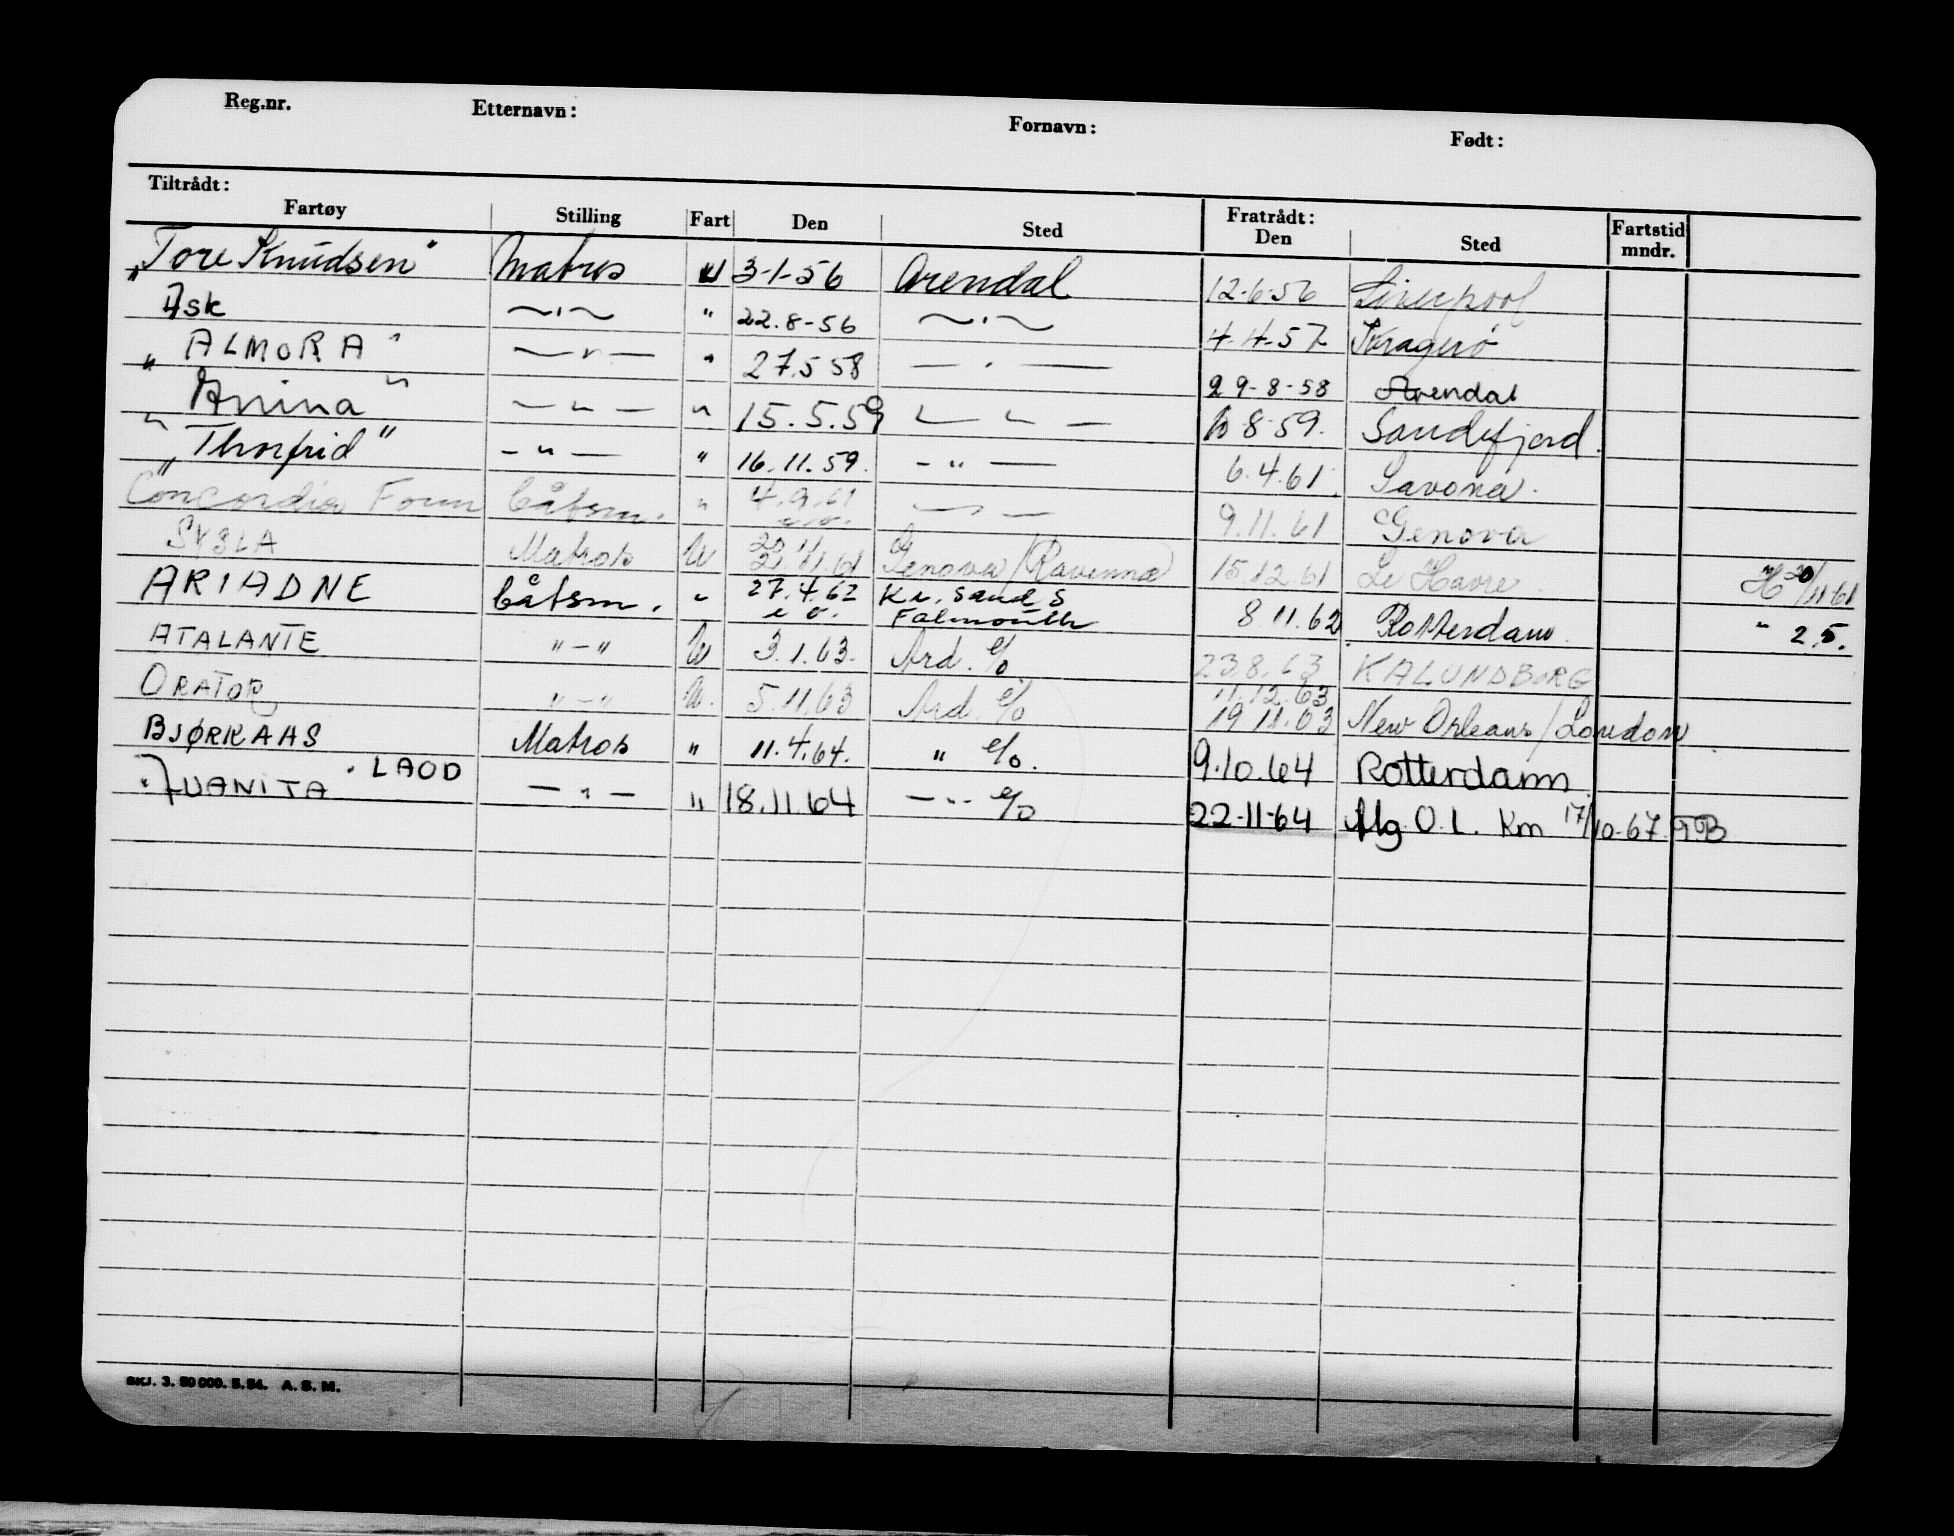 Reg.nr. Etternavn: Fornavn: Født:
Tiltrådt: Fratrådt:
Fartøy Stilling Fart Den Sted Den Sted Fartstid mndr.
"Tore Knudsen" Matros U 3-1-56 Arendal 12-6-56 Liverpool
Ask —"— " 22.8-56 —"— 4-4-57 Kragerø
"ALMORA" —"— " 27.5 58 —"— 29-8-58 Arendal
"Anina" —"— " 15.5.59 —"— 8 59. Sandefjord.
"Thorfrid" —"— " 16.11.59. —"— 6.4.61. Savona.
Concordia Fonn båtsm. " 4.9.61 —"— 9.11.61 Genova
Matros U 21.11.61 Genova/Ravenna 15.12.61 Le Havre H 20/11-61
ARIADNE båtsm. " 27.4.62 Kr. sand S Falmouth 8.11.62 Rotterdam. " 25.
ATALANTE "-" U 3.1.63. Ard. e/o 23.8.63 KALUNDBORG
ORATOR "-" U. 5.11.63 Ard. e/o 11.12.63 19 11.63 New Orleans/London
BJØRKAAS Matros " 11.4.64. " e/o. 9.10.64 Rotterdam.
"JUANITA" LAOD —"— " 18.11.64 —"— e/o 22-11-64 Mg. O.L. Km 17/10-67. TB
SKJ. 3. 50 000. 5.54. A. S. M.